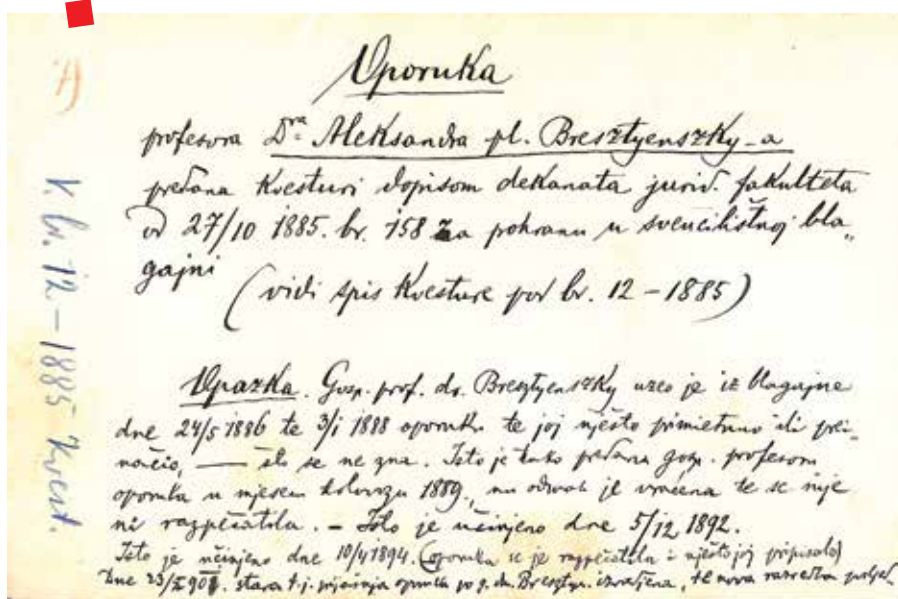 A)
V. br. 12 – 1885 Kvest.
Oporuka
profesora Dra Aleksandra pl. Bresztyenszky-a
predana Kvesturi dopisom dekanata jurid. fakulteta
od 27/10 1885. br. 158 za pohranu u sveučilištnoj bla„
gajni
(vidi spis Kvesture pod br. 12 – 1885)
Opazka. Gosp. prof. dr. Bresztyenszky uzeo je iz blagajne
dne 24/5 1886 te 3/1 1888 oporuku te joj nješto primetnuo ili prei„
načio, — što se ne zna. Isto je tako predana gosp. profesoru
oporuka u mjesecu kolovozu 1889., no odmah je vraćena te se nije
ni razpečatila. – Isto je učinjeno dne 5/12 1892.
Isto je učinjeno dne 10/4 1894. (oporuka se je razpečatila i nješto joj pripisalo)
Dne 23/X 90 stara t. j. oporuka po g. dr. izvadjena, te nova